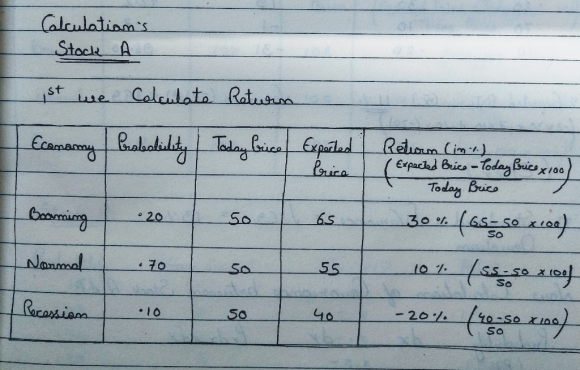 Calculation's
Stock A
1st we Calculate Return
Economy Probability Today Price Expected Price Return (in %) (Expected Price - Today Price x 100) / Today Price
Booming .20 50 65 30 % (65-50 x 100) / 50
Normal .70 50 55 10 % (55-50 x 100) / 50
Recession .10 50 40 -20 % (40-50 x 100) / 50